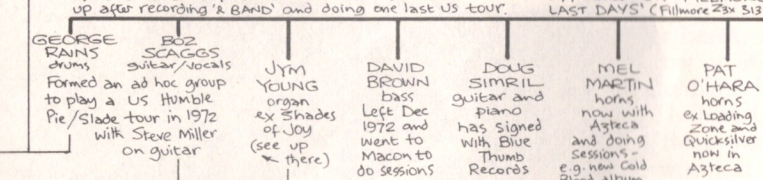 up after recording '& BAND' and doing one last US tour.
LAST DAYS' (Fillmore Z3X 313
GEORGE
RAINS
drums
Formed an ad hoc group
to play a US Humble
Pie/Slade tour in 1972
with Steve Miller
on guitar
BOZ
SCAGGS
guitar/vocals
JYM
YOUNG
organ
ex Shades
of Joy
(see up
there)
DAVID
BROWN
bass
Left Dec
1972 and
went to
Macon to
do sessions
DOUG
SIMRIL
guitar and
piano
has signed
with Blue
Thumb
Records
MEL
MARTIN
horns
now with
Azteca
and doing
sessions -
e.g. new Cold
Blood album
PAT
O'HARA
horns
ex Loading
Zone and
Quicksilver
now in
Azteca